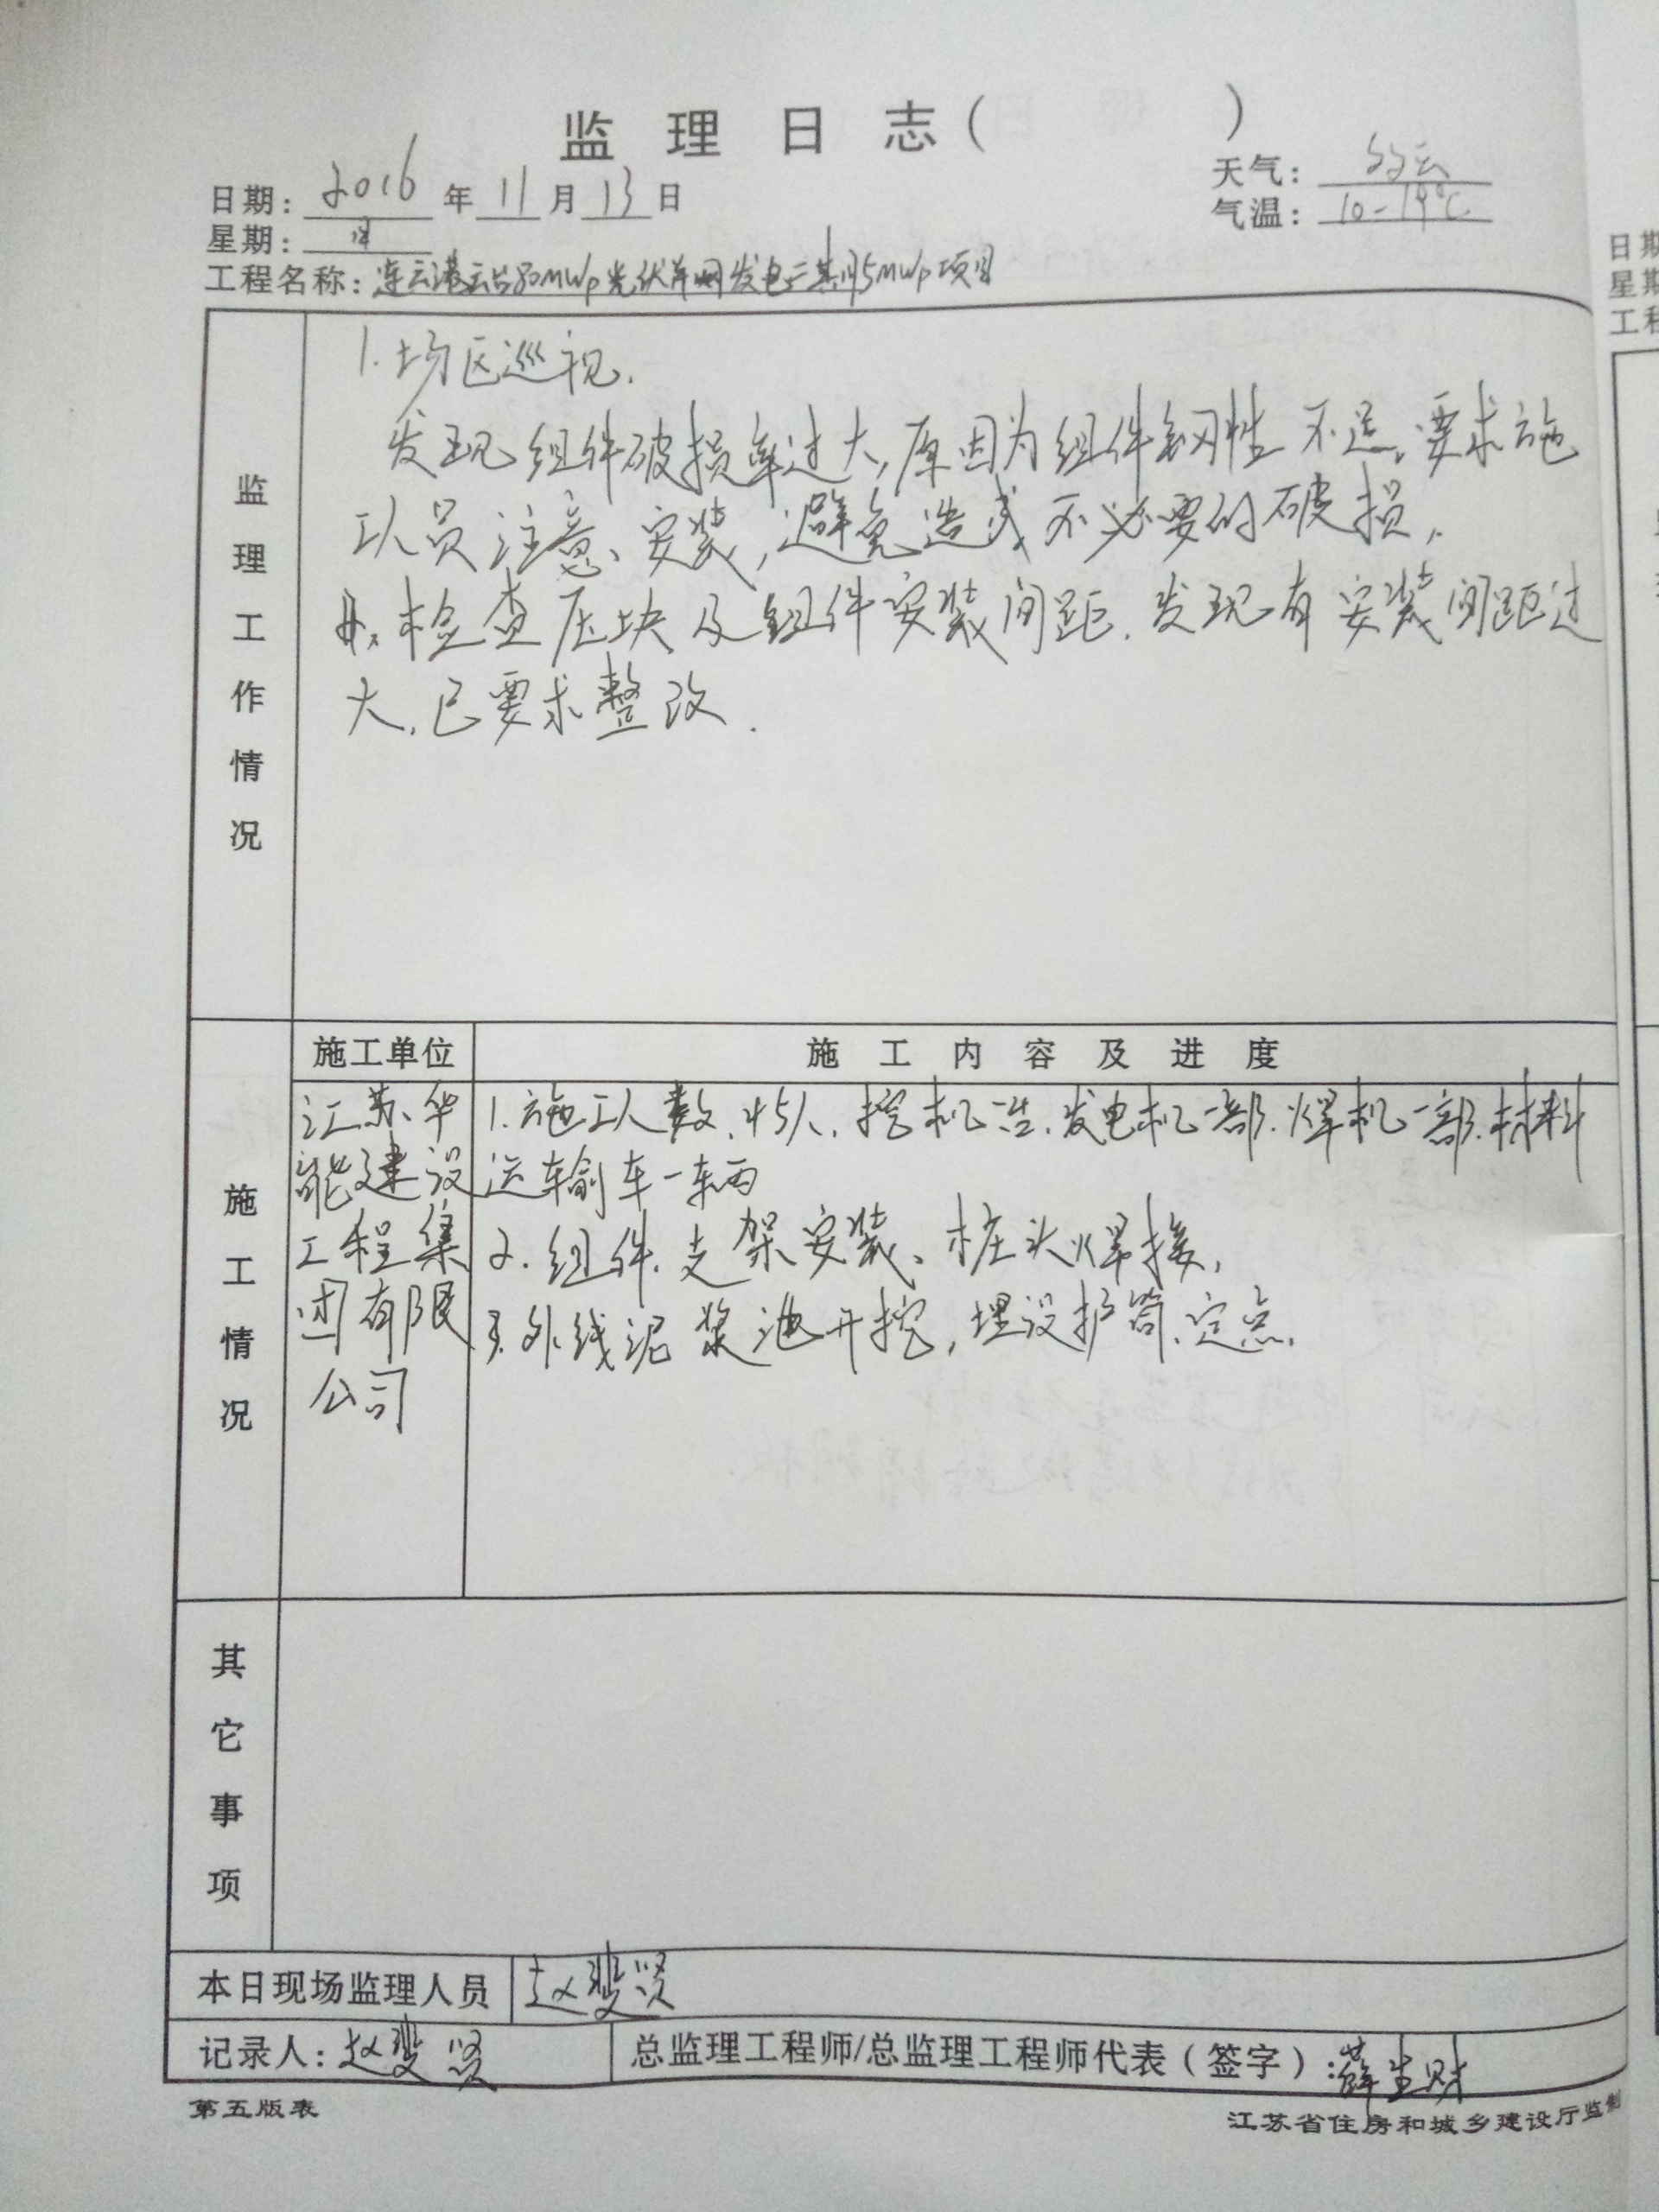 监 理 日 志 (            )
日期: 2016 年 11 月 13 日
天气: 多云
星期: 日
气温: 10-19℃
工程名称: 连云港云台80MWp光伏并网发电二期15MWp项目
监理工作情况
1. 场区巡视.
发现组件破损率过大,原因为组件钢性不足,要求施
工人员注意、安装,避免造成不必要的破损.
2. 检查压块及组件安装间距.发现有安装间距过
大,已要求整改.
施工单位
施 工 内 容 及 进 度
施工情况
江苏华
能建设
工程集
团有限
公司
1. 施工人数、45人、挖机一台、发电机一部.焊机一部.材料
运输车一辆
2. 组件.支架安装、桩头焊接,
3. 外线泥浆池开挖,埋设护筒、定点.
其它事项
本日现场监理人员 赵斐贤
记录人: 赵斐贤
总监理工程师/总监理工程师代表(签字): 薛生财
第五版表
江苏省住房和城乡建设厅监制
日期
星期
工程